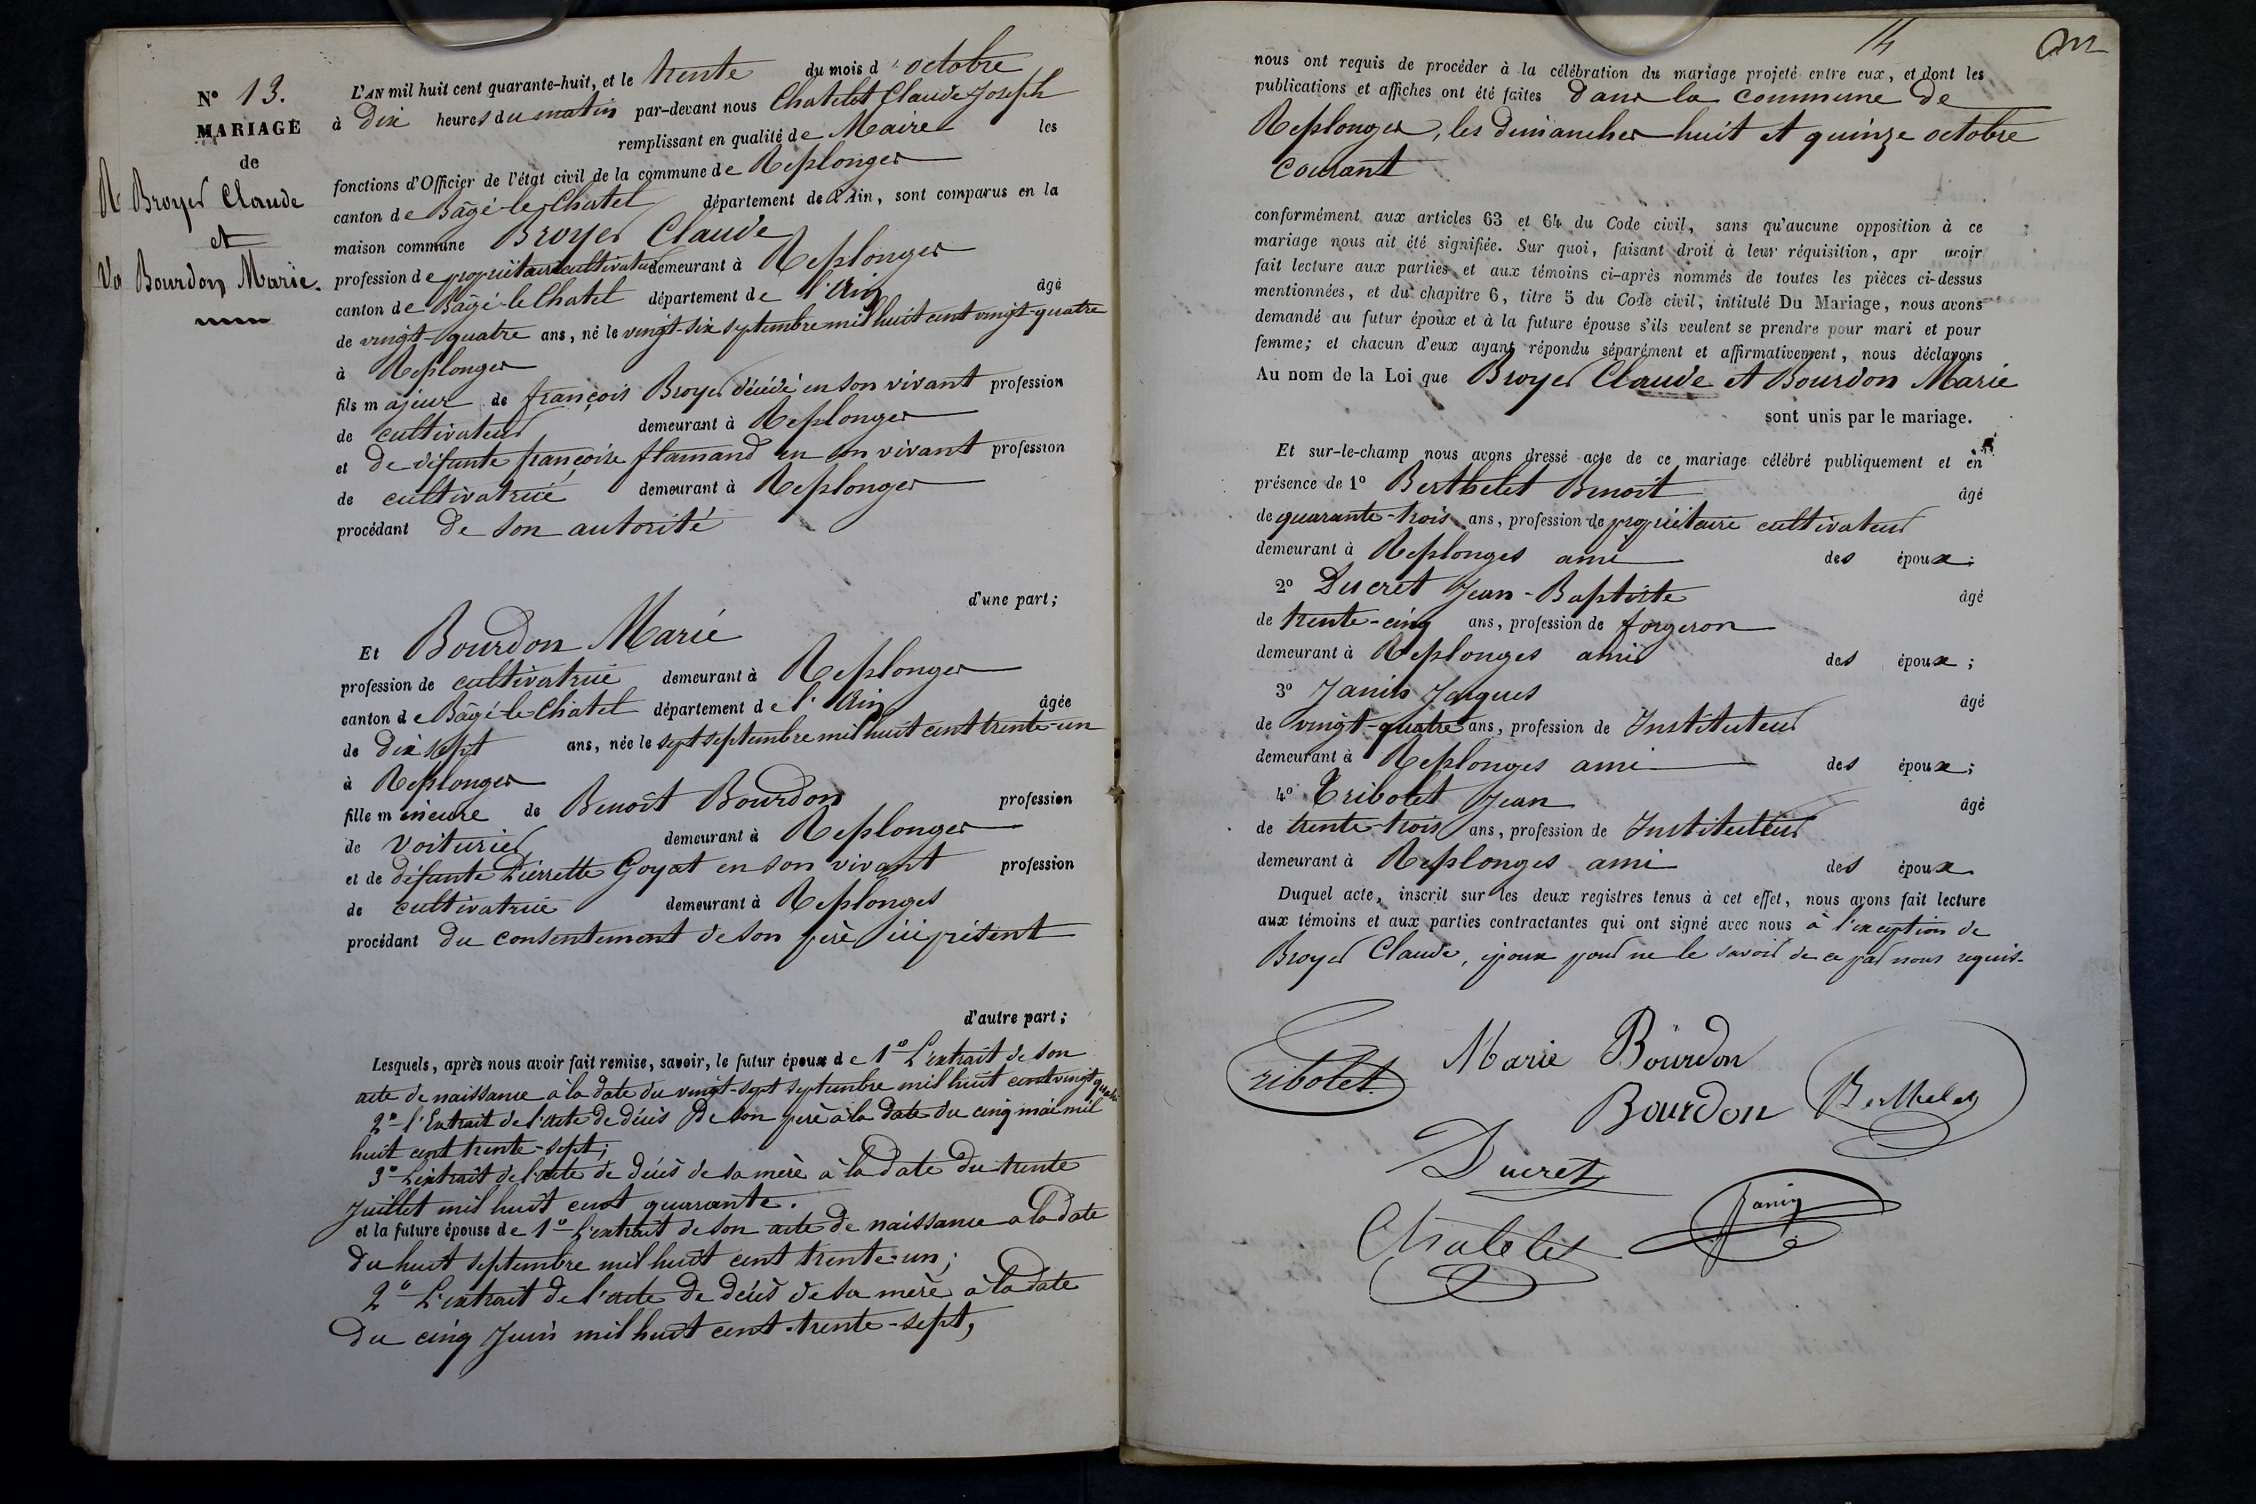 N° 13.
MARIAGE
de
R Broyer Claude
et
Va Bourdon Marie.
L'AN mil huit cent quarante-huit, et le trente du mois d'octobre
à Dix heures du matin par-devant nous Chatelet Claude Joseph
remplissant en qualité de Maire les
fonctions d'Officier de l'état civil de la commune de Replonges
canton de Bâgé-le-Chatel département de l'Ain, sont comparus en la
maison commune Broyer Claude
profession de propriétaire cultivateur demeurant à Replonges
canton de Bâgé-le-Chatel département de l'Ain âgé
de vingt-quatre ans, né le vingt-six septembre mil huit cent vingt-quatre
à Replonges
fils majeur de françois Broyer décédé en son vivant profession
de cultivateur demeurant à Replonges
et de défunte françoise flamand en son vivant profession
de cultivatrice demeurant à Replonges
procédant de son autorité
d'une part;
Et Bourdon Marie
profession de cultivatrice demeurant à Replonges
canton de Bâgé-le-Chatel département de l'Ain âgée
de dix sept ans, née le sept septembre mil huit cent trente-un
à Replonges
fille mineure de Benoît Bourdon profession
de voiturier demeurant à Replonges
et de défunte Pierrette Goyat en son vivant profession
de cultivatrice demeurant à Replonges
procédant du consentement de son père ici présent
d'autre part;
Lesquels, après nous avoir fait remise, savoir, le futur époux de 1° L'extrait de son
acte de naissance à la date du vingt-sept septembre mil huit cent vingt quatre
2° l'Extrait de l'acte de décès De son père à la date du cinq mai mil
huit cent trente-sept;
3° L'extrait de l'acte de décès de sa mère à la date du trente
Juillet mil huit cent quarante.
et la future épouse de 1° L'extrait de son acte de naissance a la date
du huit septembre mil huit cent trente-un;
2° L'extrait de l'acte de décès de sa mère à la date
du cinq Juin mil huit cent-trente-sept,
14
nous ont requis de procéder à la célébration du mariage projeté entre eux, et dont les
publications et affiches ont été faites dans la commune de
Replonges, les dimanches huit et quinze octobre
courant
conformément aux articles 63 et 64 du Code civil, sans qu'aucune opposition à ce
mariage nous ait été signifiée. Sur quoi, faisant droit à leur réquisition, apr avoir
fait lecture aux parties et aux témoins ci-après nommés de toutes les pièces ci-dessus
mentionnées, et du chapitre 6, titre 5 du Code civil, intitulé Du Mariage, nous avons
demandé au futur époux et à la future épouse s'ils veulent se prendre pour mari et pour
femme; et chacun d'eux ayant répondu séparément et affirmativement, nous déclarons
Au nom de la Loi que Broyer Claude et Bourdon Marie
sont unis par le mariage.
Et sur-le-champ nous avons dressé acte de ce mariage célébré publiquement et en
présence de 1° Berthelet Benoît âgé
de quarante-trois ans, profession de propriétaire cultivateur
demeurant à Replonges ami des époux;
2° Ducret Jean-Baptiste âgé
de trente-cinq ans, profession de forgeron
demeurant à Replonges ami des époux;
3° Janin Jacques âgé
de vingt-quatre ans, profession de Instituteur
demeurant à Replonges ami des époux;
4° Tribolet Jean âgé
de trente-trois ans, profession de Instituteur
demeurant à Replonges ami des époux
Duquel acte, inscrit sur les deux registres tenus à cet effet, nous avons fait lecture
aux témoins et aux parties contractantes qui ont signé avec nous à l'exception de
Broyer Claude, époux pour ne le savoir de ce par nous requis.
Tribolet Marie Bourdon
Bourdon Berthelet
Ducret
Chatelet Janin